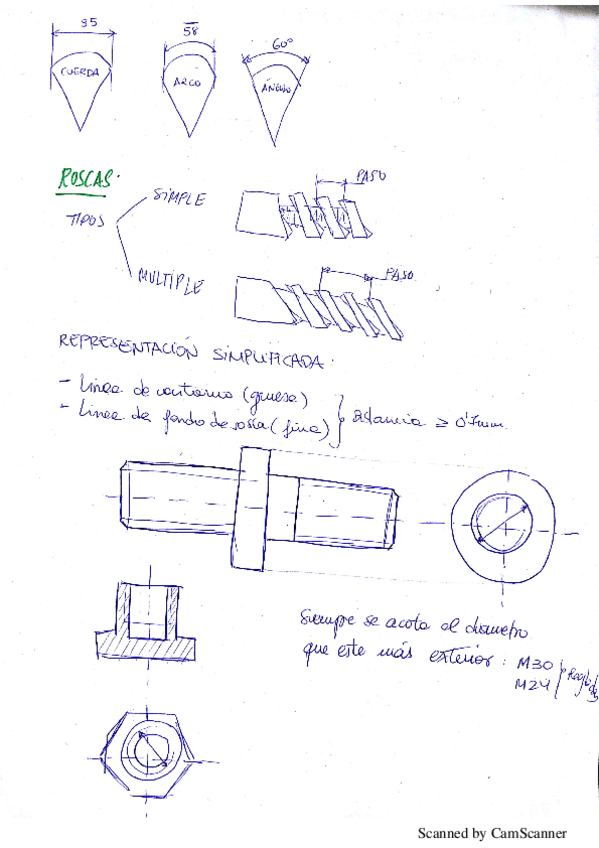 95
58
60°
CUERDA
ARCO
ÁNGULO
ROSCAS.
PASO
SIMPLE
TIPOS
MULTIPLE
PASO
REPRESENTACIÓN SIMPLIFICADA:
- Línea de contorno (gruesa)
- Línea de fondo de rosca (fina)
distancia ≥ 0'7mm.
Siempre se acota el diámetro
que este más exterior: M30
M24
Scanned by CamScanner